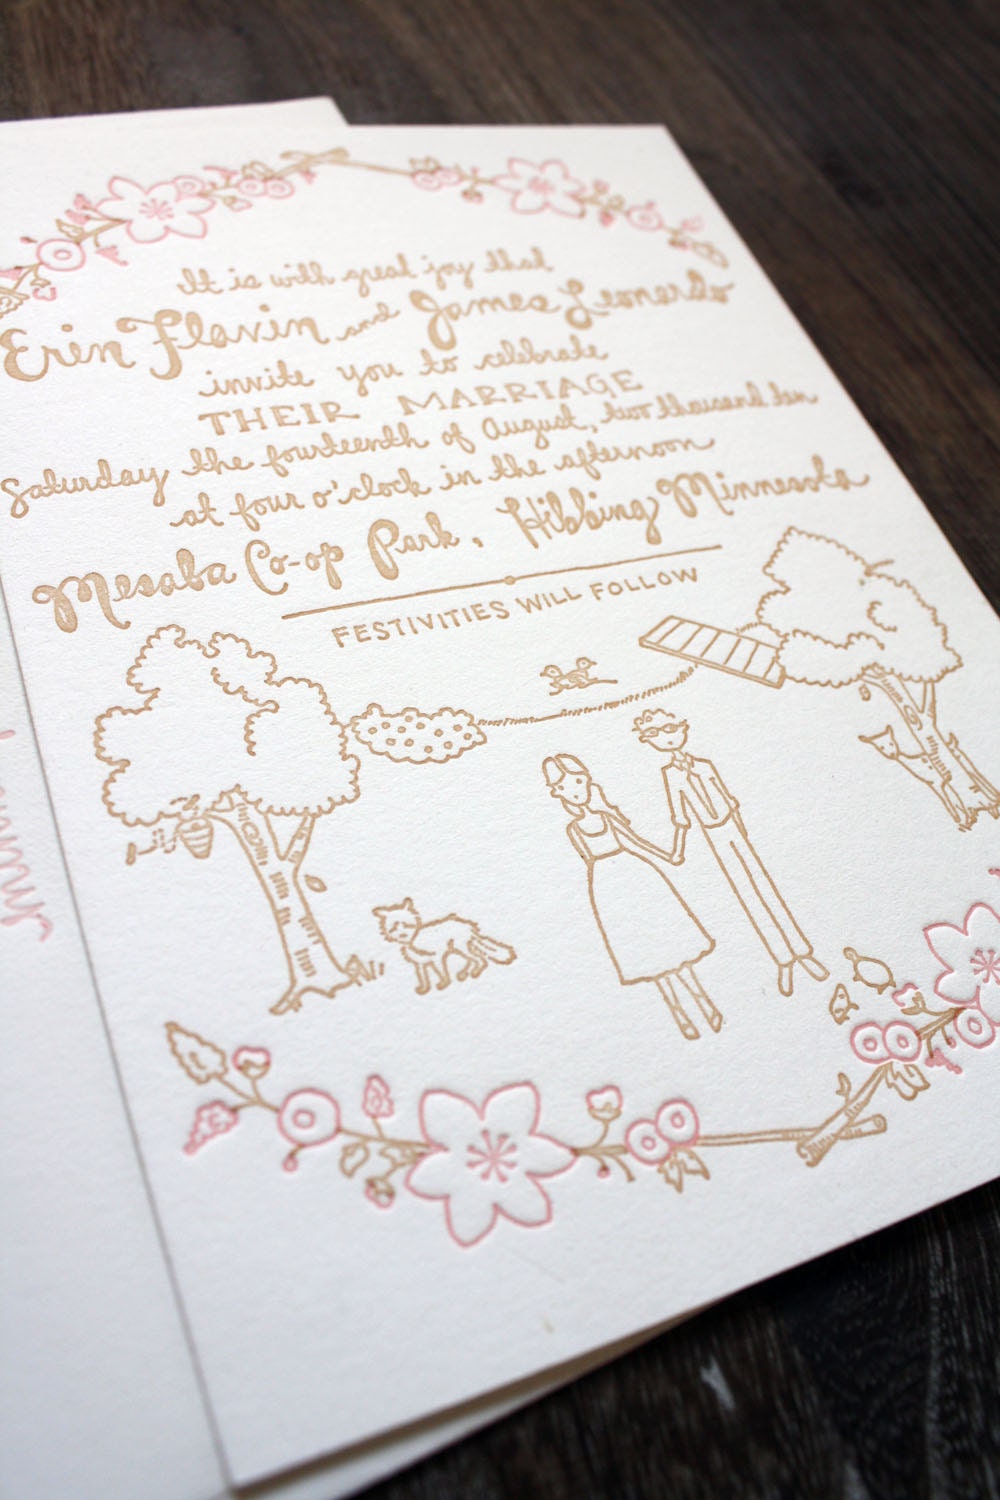 It is with great joy that
Erin Flavin and James Leonardo
invite you to celebrate
THEIR MARRIAGE
Saturday the fourteenth of August, two thousand ten
at four o'clock in the afternoon
Mesaba Co-op Park, Hibbing Minnesota
FESTIVITIES WILL FOLLOW